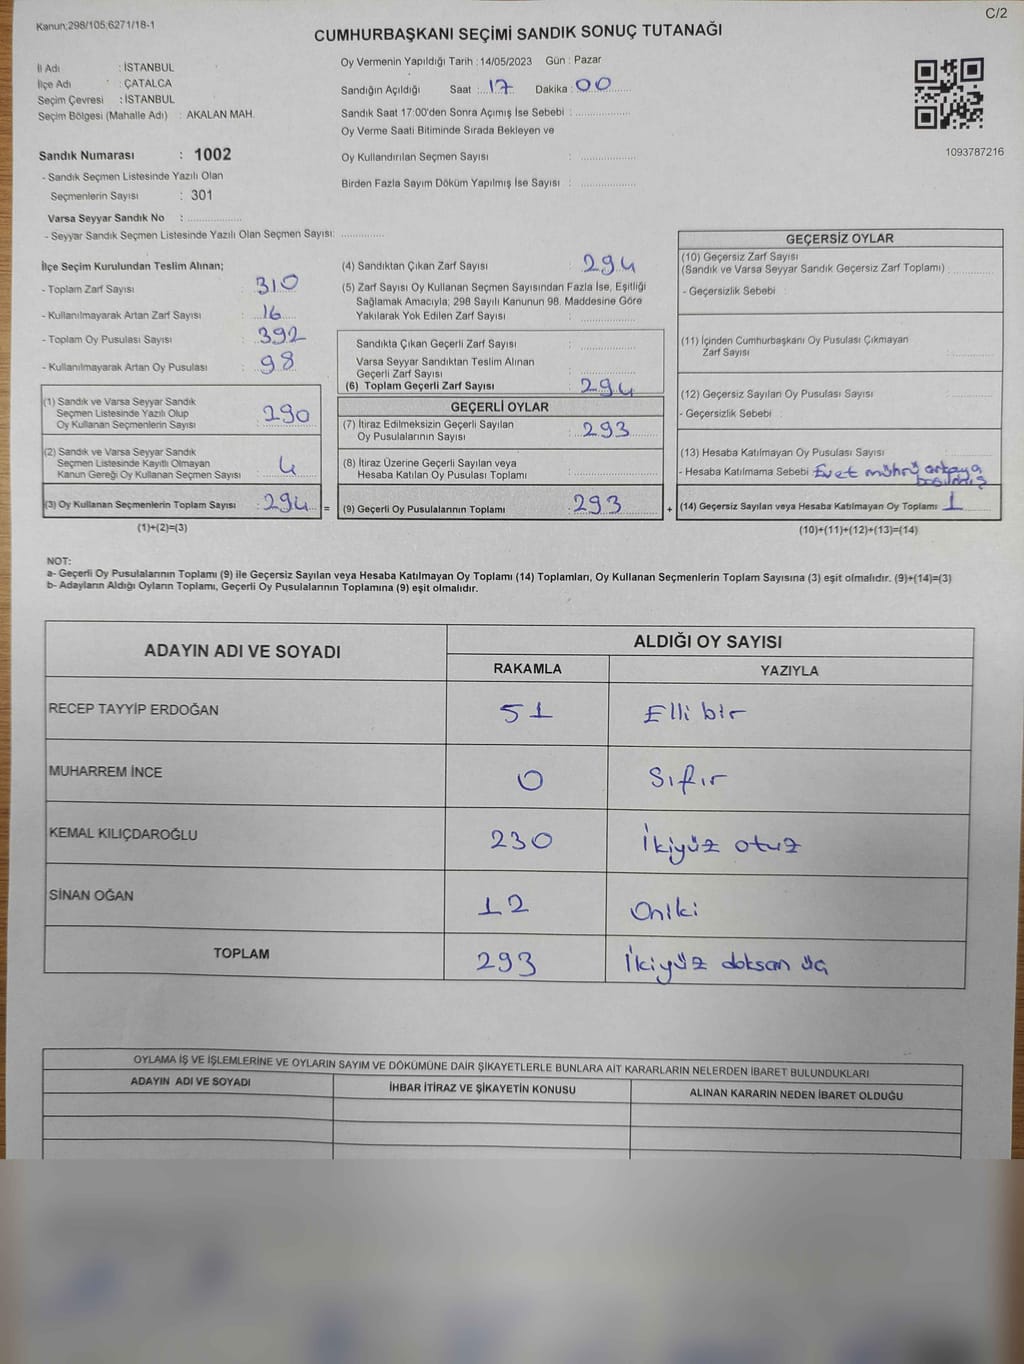 Kanun:298/105,6271/18-1
C/2
CUMHURBAŞKANI SEÇİMİ SANDIK SONUÇ TUTANAĞI
İl Adı : İSTANBUL
İlçe Adı : ÇATALCA
Seçim Çevresi : İSTANBUL
Seçim Bölgesi (Mahalle Adı) : AKALAN MAH.
Oy Vermenin Yapıldığı Tarih : 14/05/2023 Gün : Pazar
Sandığın Açıldığı Saat : 17 Dakika : 00
Sandık Saat 17:00'den Sonra Açımış İse Sebebi :
Oy Verme Saati Bitiminde Sırada Bekleyen ve
Oy Kullandırılan Seçmen Sayısı :
Birden Fazla Sayım Döküm Yapılmış İse Sayısı :
1093787216
Sandık Numarası : 1002
- Sandık Seçmen Listesinde Yazılı Olan
Seçmenlerin Sayısı : 301
Varsa Seyyar Sandık No :
- Seyyar Sandık Seçmen Listesinde Yazılı Olan Seçmen Sayısı:
İlçe Seçim Kurulundan Teslim Alınan;
- Toplam Zarf Sayısı : 310
- Kullanılmayarak Artan Zarf Sayısı : 16
- Toplam Oy Pusulası Sayısı : 392
- Kullanılmayarak Artan Oy Pusulası : 98
(1) Sandık ve Varsa Seyyar Sandık
Seçmen Listesinde Yazılı Olup
Oy Kullanan Seçmenlerin Sayısı : 290
(2) Sandık ve Varsa Seyyar Sandık
Seçmen Listesinde Kayıtlı Olmayan
Kanun Gereği Oy Kullanan Seçmen Sayısı : 4
(3) Oy Kullanan Seçmenlerin Toplam Sayısı : 294 =
(1)+(2)=(3)
(4) Sandıktan Çıkan Zarf Sayısı : 294
(5) Zarf Sayısı Oy Kullanan Seçmen Sayısından Fazla İse, Eşitliği
Sağlamak Amacıyla; 298 Sayılı Kanunun 98. Maddesine Göre
Yakılarak Yok Edilen Zarf Sayısı :
Sandıkta Çıkan Geçerli Zarf Sayısı :
Varsa Seyyar Sandıktan Teslim Alınan
Geçerli Zarf Sayısı :
(6) Toplam Geçerli Zarf Sayısı : 294
GEÇERLİ OYLAR
(7) İtiraz Edilmeksizin Geçerli Sayılan
Oy Pusulalarının Sayısı : 293
(8) İtiraz Üzerine Geçerli Sayılan veya
Hesaba Katılan Oy Pusulası Toplamı
(9) Geçerli Oy Pusulalarının Toplamı : 293 +
GEÇERSİZ OYLAR
(10) Geçersiz Zarf Sayısı
(Sandık ve Varsa Seyyar Sandık Geçersiz Zarf Toplamı) :
- Geçersizlik Sebebi :
(11) İçinden Cumhurbaşkanı Oy Pusulası Çıkmayan
Zarf Sayısı :
(12) Geçersiz Sayılan Oy Pusulası Sayısı :
- Geçersizlik Sebebi :
(13) Hesaba Katılmayan Oy Pusulası Sayısı :
- Hesaba Katılmama Sebebi : Evet mührü arkaya
basılmış
(14) Geçersiz Sayılan veya Hesaba Katılmayan Oy Toplamı : 1
(10)+(11)+(12)+(13)=(14)
NOT:
a- Geçerli Oy Pusulalarının Toplamı (9) ile Geçersiz Sayılan veya Hesaba Katılmayan Oy Toplamı (14) Toplamları, Oy Kullanan Seçmenlerin Toplam Sayısına (3) eşit olmalıdır. (9)+(14)=(3)
b- Adayların Aldığı Oyların Toplamı, Geçerli Oy Pusulalarının Toplamına (9) eşit olmalıdır.
ADAYIN ADI VE SOYADI
ALDIĞI OY SAYISI
RAKAMLA YAZIYLA
RECEP TAYYİP ERDOĞAN 51 Elli bir
MUHARREM İNCE 0 Sıfır
KEMAL KILIÇDAROĞLU 230 İkiyüz otuz
SİNAN OĞAN 12 Oniki
TOPLAM 293 İkiyüz doksan üç
OYLAMA İŞ VE İŞLEMLERİNE VE OYLARIN SAYIM VE DÖKÜMÜNE DAİR ŞİKAYETLERLE BUNLARA AİT KARARLARIN NELERDEN İBARET BULUNDUKLARI
ADAYIN ADI VE SOYADI İHBAR İTİRAZ VE ŞİKAYETİN KONUSU ALINAN KARARIN NEDEN İBARET OLDUĞU